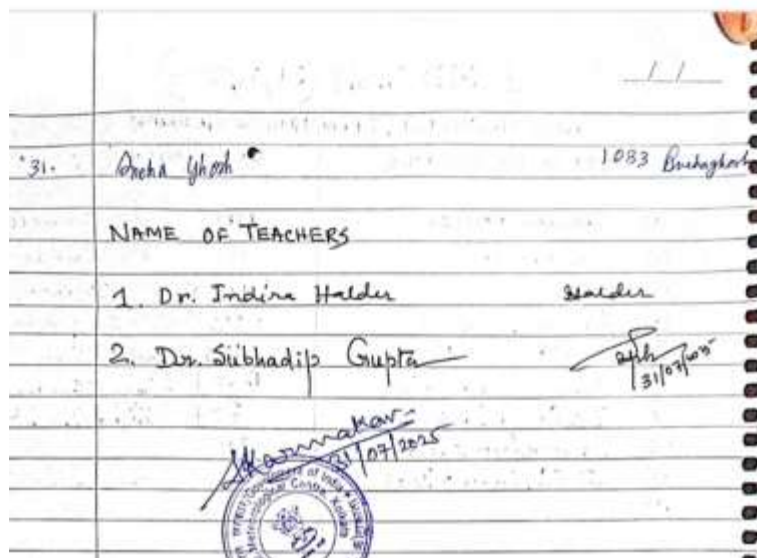 / /
31. Sneha Ghosh 1083 Snehaghosh
NAME OF TEACHERS
1. Dr. Indira Halder Halder
2. Dr. Subhadip Gupta
31/07/2025
SKarmakar
31/07/2025
Government of India
Meteorological Centre, Kolkata